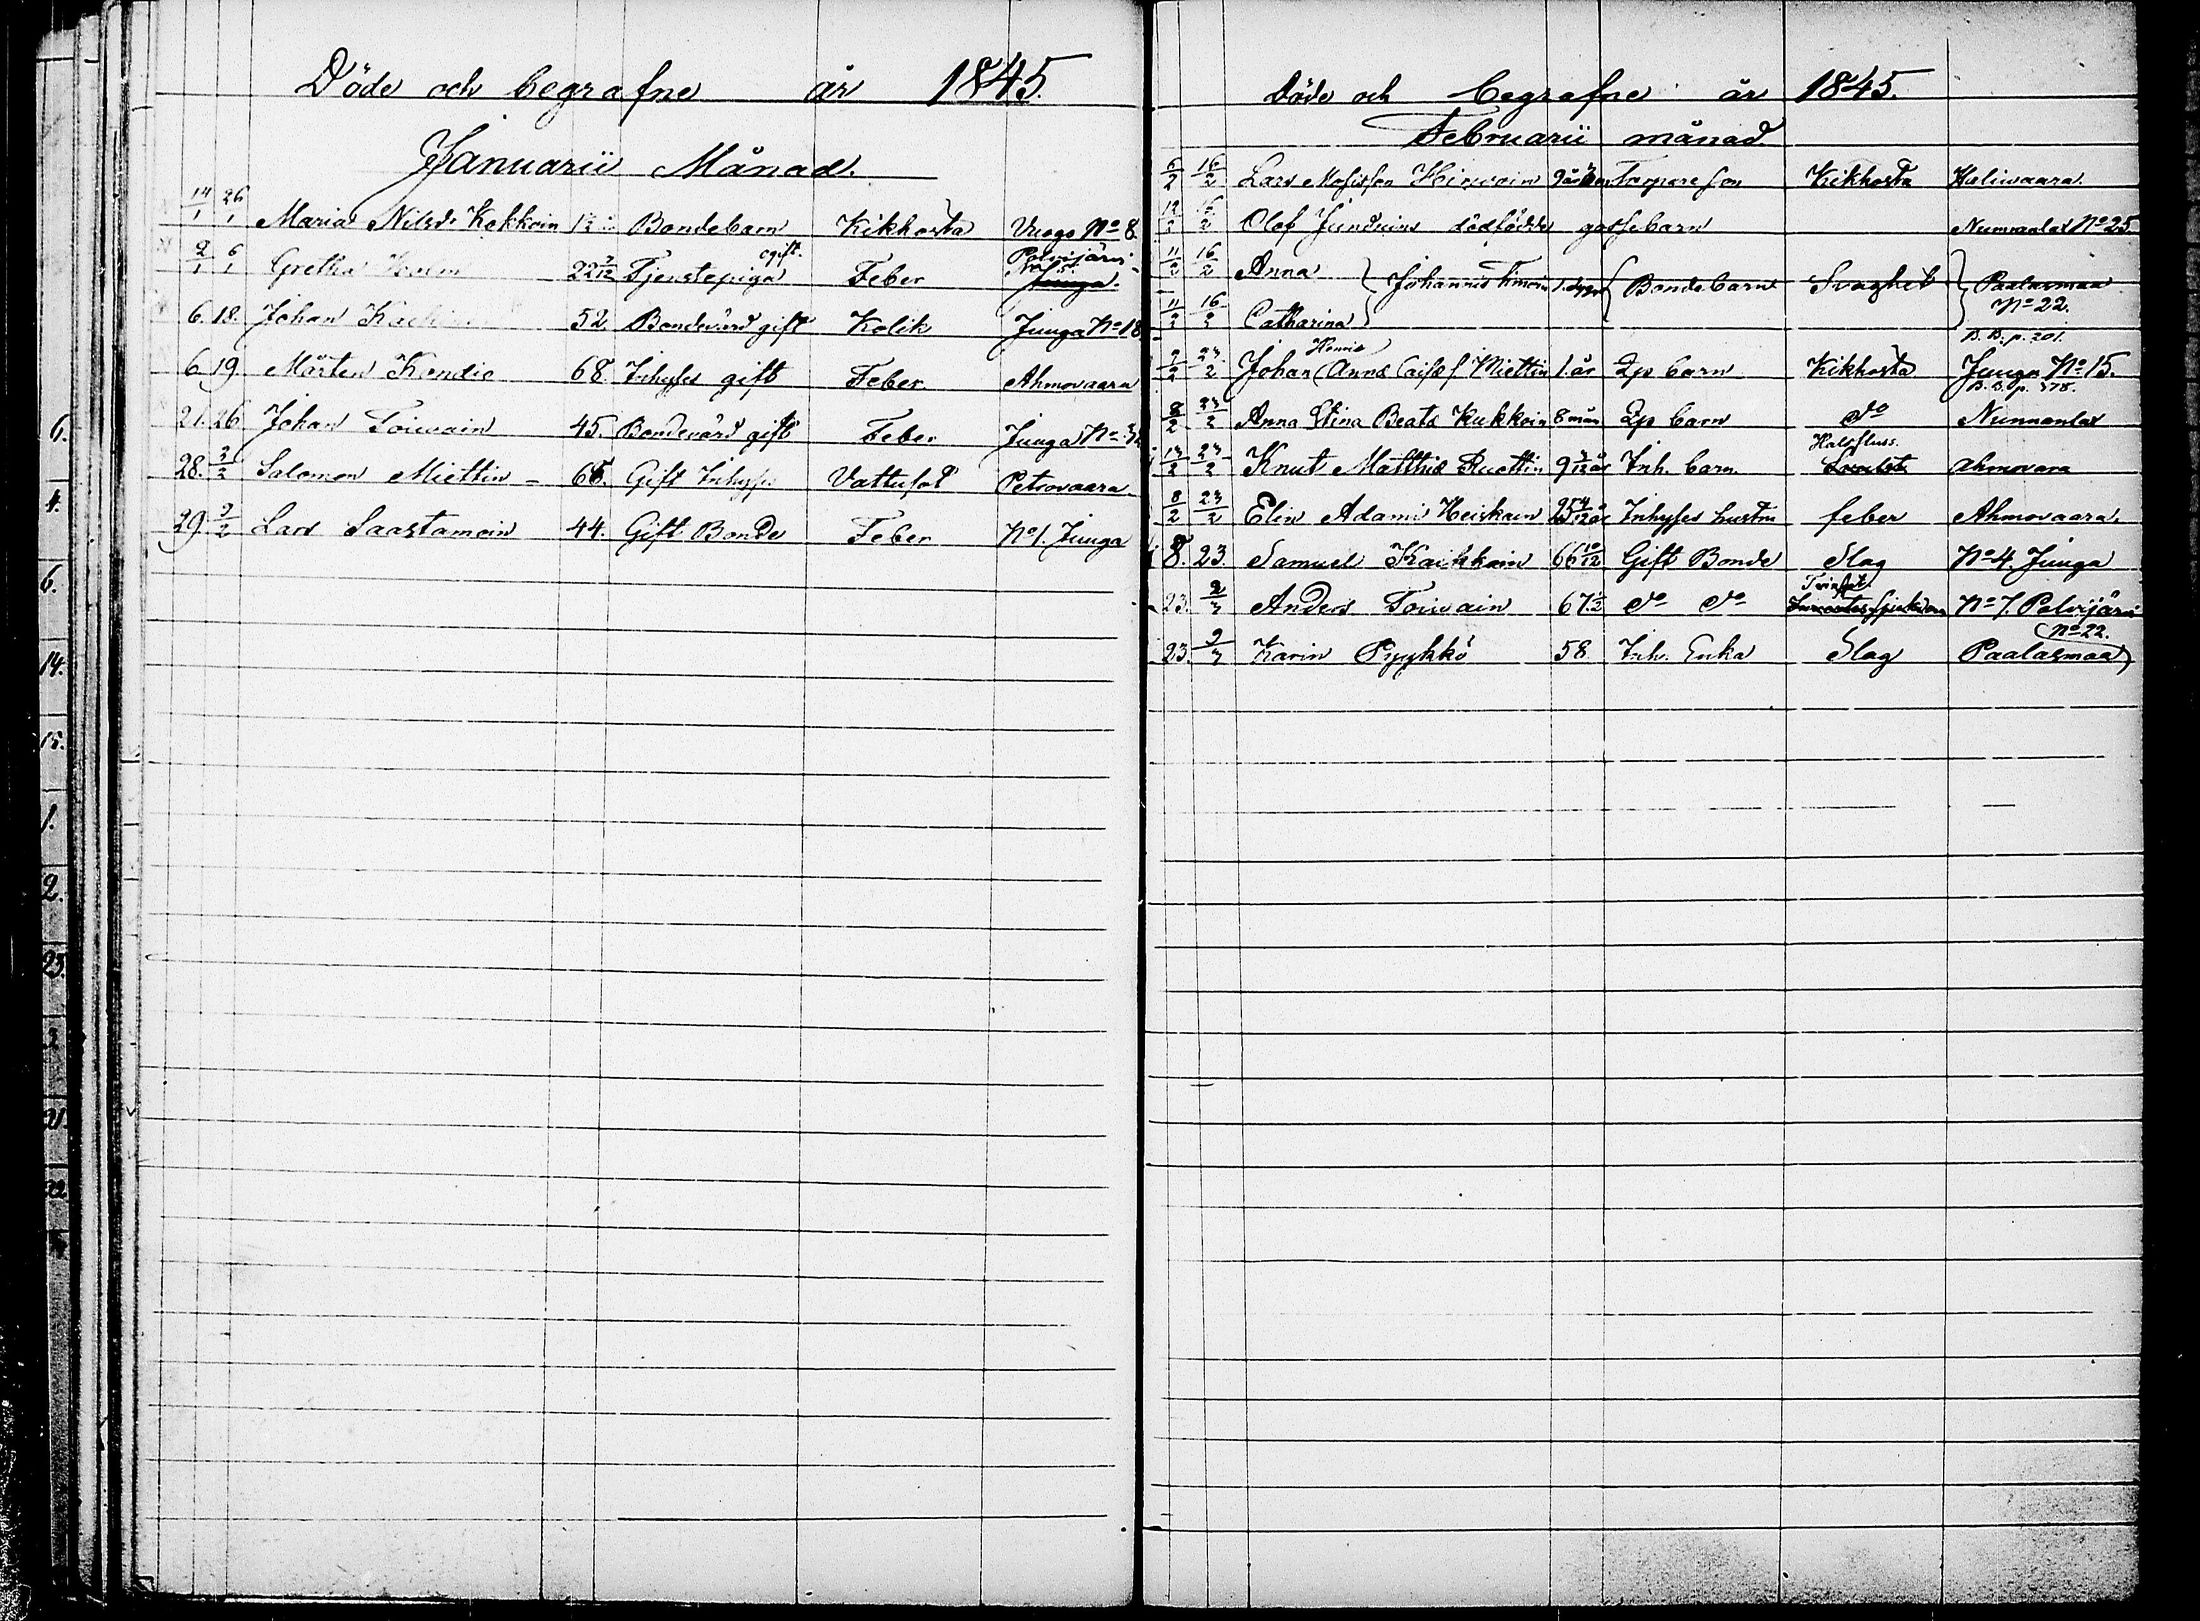 Döde och begrafne år 1845.
Januarii Månad.
14/1 26/1 Maria Nilsd. Kokkoin Bondebarn Kikhosta Vuogo No 8.
2/1 6/1 Gretha 22 Tjenstepiga ogift. Feber Polvijärvi No 5. Juuga.
6. 18. Johan 52 Bondevärd gift Kolik Juuga No 18
6 19. Mårten Kondie 68. Inhyses gift Feber Ahmovaara
21. 26 Johan Toivain 45. Bondevärd gift Feber Juuga No
28. 2/2 Salomon Miettin 66. Gift Inhyses Vattusot Petrovaara
29. 9/2 Lars Saastamoin 44. Gift Bonde Feber No 1. Juuga
Döde och begrafne år 1845.
Februarii månad
6/2 16/2 Lars Mosisson Hirvoin 9 Torpare son Kikhosta Halivaara.
12/2 16/2 Olof dödfödde gossebarn Nunnanlax No 25.
11/2 16/2 Anna } Johannis Timoin { Bonde barn Svaghet } Paalasmaa
11/2 16/2 Catharina No 22.
B. B. p. 201.
2/2 23/2 Johan Henric (Anna Caisas) Miettin 1. år Lp barn Kikhosta Juuga No 15.
B. B. p. 378.
8/2 23/2 Anna Stina Beata Kukkoin 8 mån Lp barn do Nunnanlax
13/2 23/2 Knut Matthis Ruottin 9 år Inh. barn. Halsfluss. Ahmovara
8/2 23/2 Elin Adami Heiskain 25 4/12 år Inhyses hustru feber Ahmovaara.
8. 23. Samuel Kaikkoin 66 10/12 Gift Bonde Slag No 4. Juuga
23. 2/3 Anders Toivain 67 1/2 do do Tvinsot No 7. Polvijärvi
No 22.
23. 9/3 Karin Pyykkö 58 Inh. Enka Slag Paalasmaa